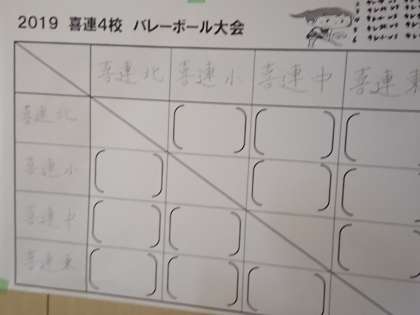 2019 喜連4校 バレーボール大会
喜連北 喜連小 喜連中 喜連東
喜連北
喜連小
喜連中
喜連東